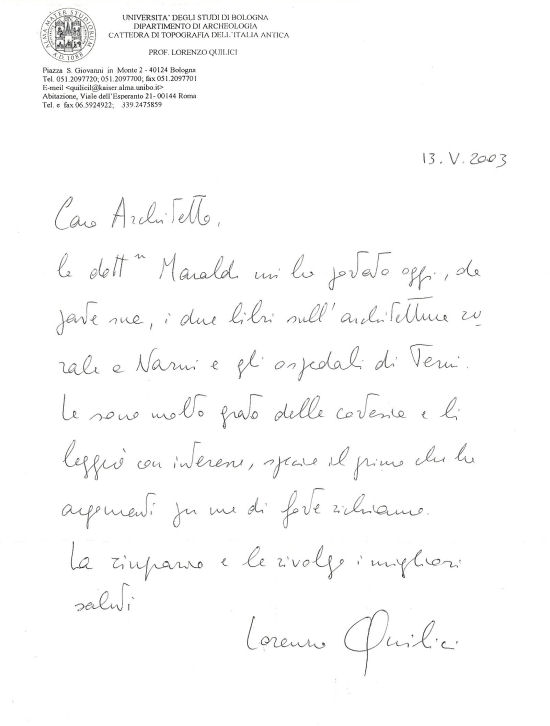 UNIVERSITA' DEGLI STUDI DI BOLOGNA
DIPARTIMENTO DI ARCHEOLOGIA
CATTEDRA DI TOPOGRAFIA DELL'ITALIA ANTICA
PROF. LORENZO QUILICI
Piazza S. Giovanni in Monte 2 - 40124 Bologna
Tel. 051.2097720; 051.2097700; fax 051.2097701
E-mail <quilicil@kaiser.alma.unibo.it>
Abitazione, Viale dell'Esperanto 21- 00144 Roma
Tel. e fax 06.5924922; 339.2475859
13.V.2003
Caro Architetto,
la dott.ssa Maraldi mi ha portato oggi, da
parte sua, i due libri sull'architettura ru
rale a Narni e gli ospedali di Terni.
Le sono molto grato della cortesia e li
leggerò con interesse, specie il primo che ha
argomenti per me di forte richiamo.
La ringrazio e le rivolgo i migliori
saluti
Lorenzo Quilici